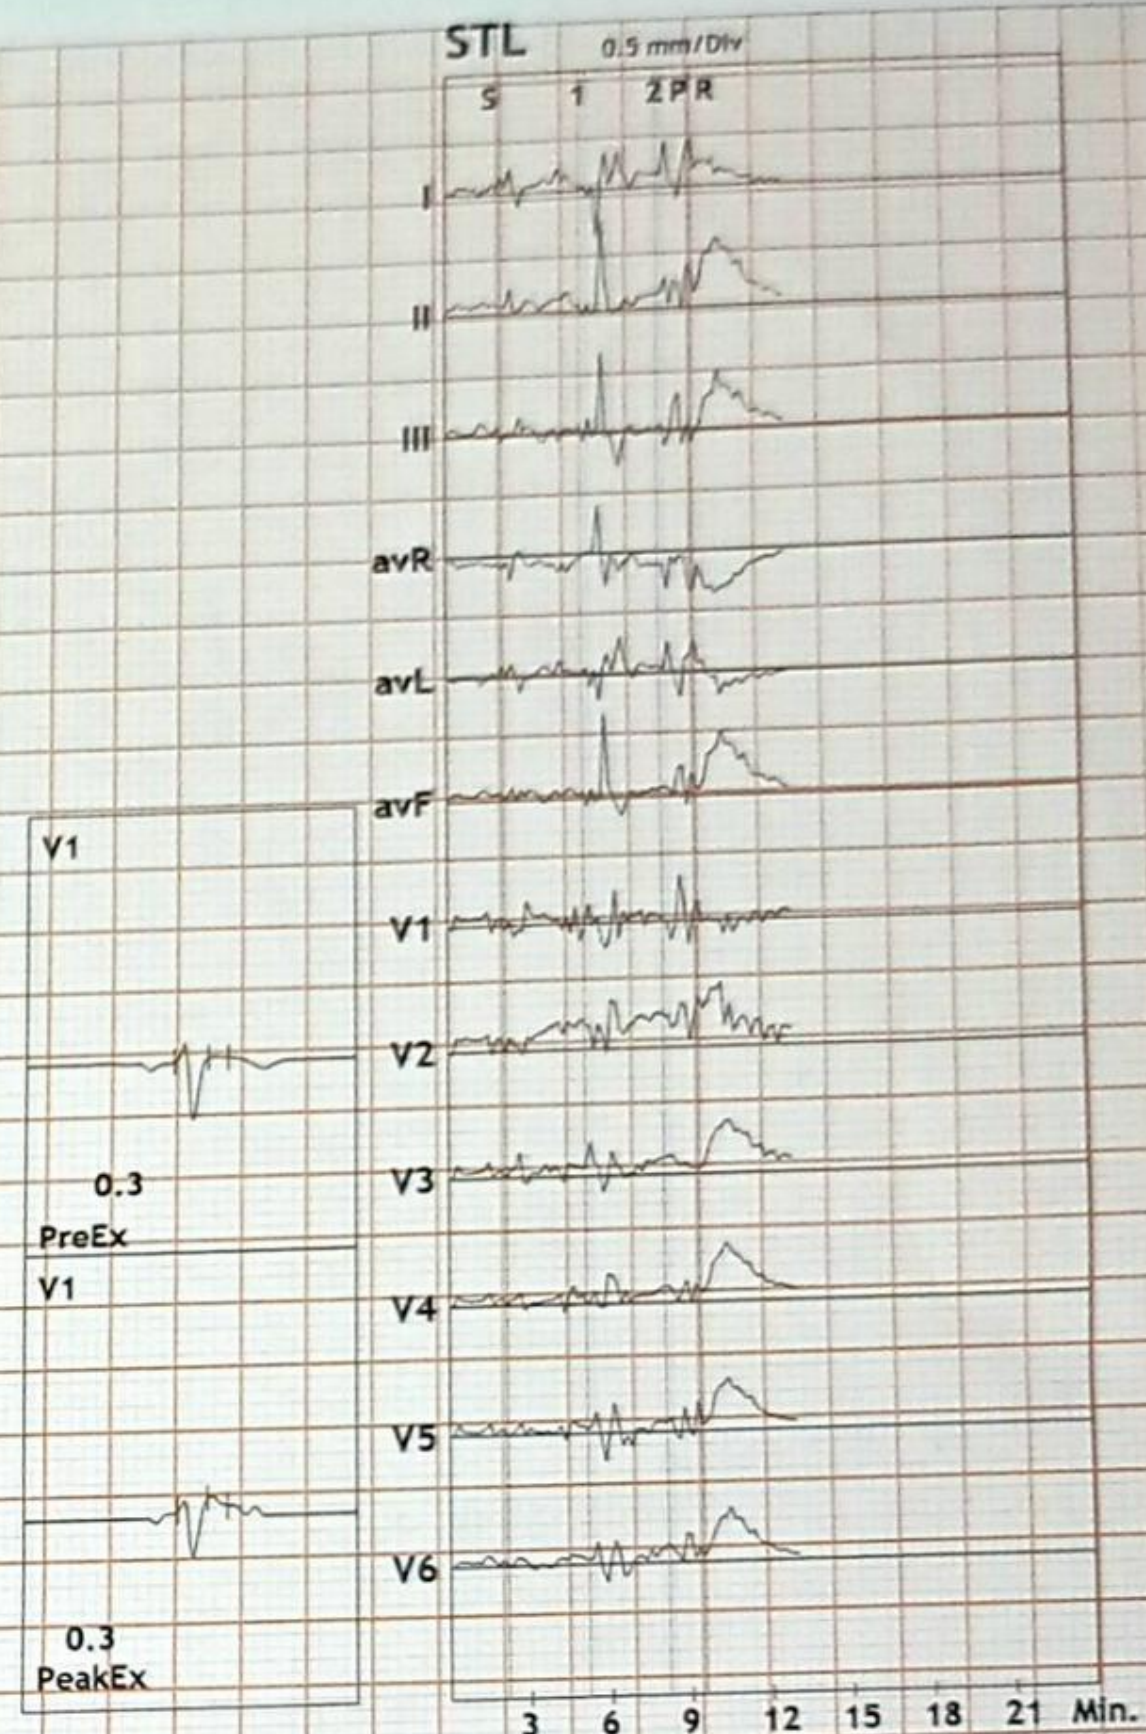 STL 0.5 mm/Div
S 1 2 P R
I
II
III
avR
avL
avF
V1
V2
V3
V4
V5
V6
3 6 9 12 15 18 21 Min.
V1
0.3
PreEx
V1
0.3
PeakEx